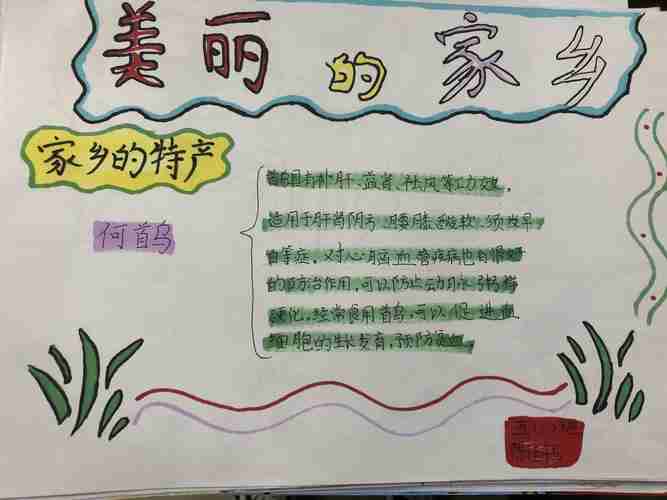 美丽的家乡
家乡的特产
何首乌
补肝、益肾、祛风等功效。
适用于肝肾阴亏、腰膝酸软、须发早
白等症，对心脑血管疾病也有
的防治作用，可以防止动脉粥样
硬化，经常食用首乌，可以促进血
细胞的生长发育，预防贫血。